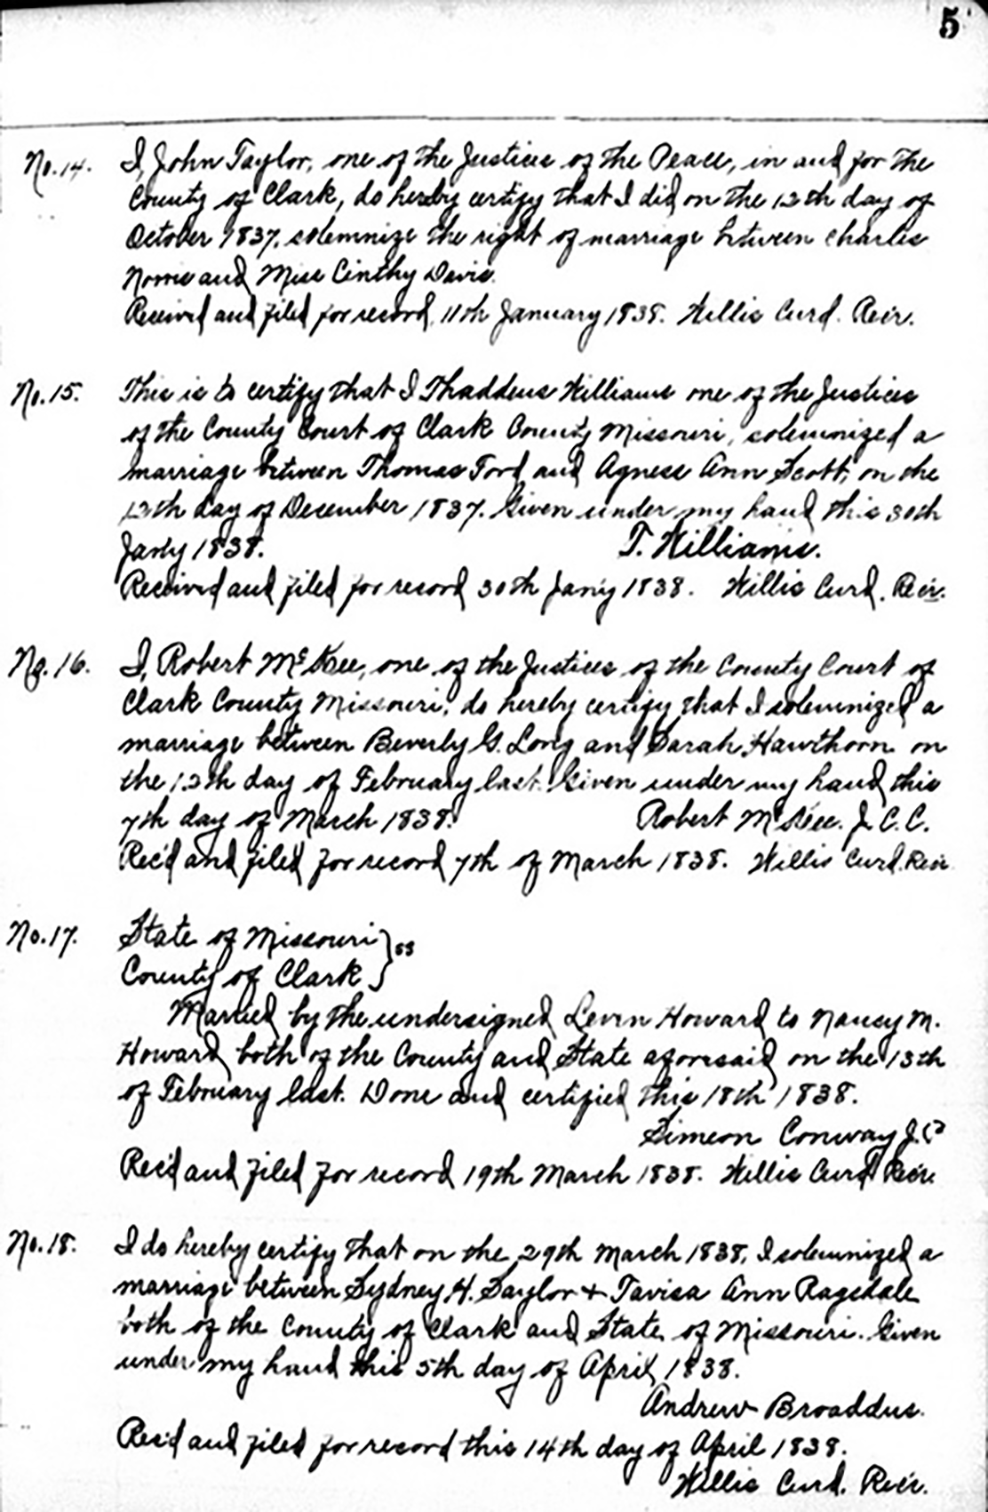 5
No. 14. I, John Taylor, one of the Justices of the Peace, in and for the
County of Clark, do hereby certify that I did on the 12th day of
October 1837, solemnize the right of marriage between Charles
Norris and Miss Cinthy Davis.
Received and filed for record, 11th January 1838. Willis Curd. Rec'r.
No. 15. This is to certify that I Thaddeus Williams one of the Justices
of the County Court of Clark County Missouri, solemnized a
marriage between Thomas Ford and Agness Ann Scott, on the
12th day of December 1837. Given under my hand this 30th
Jan'y 1838. T. Williams.
Received and filed for record 30th Jan'y 1838. Willis Curd. Rec'r.
No. 16. I, Robert McKee, one of the Justices of the County Court of
Clark County Missouri, do hereby certify that I solemnized a
marriage between Beverly G. Long and Sarah Hawthorn on
the 12th day of February last. Given under my hand this
7th day of March 1838. Robert McKee. J. C. C.
Rec'd and filed for record 7th of March 1838. Willis Curd. Rec'r
No. 17. State of Missouri } ss
County of Clark }
Married by the undersigned Levin Howard to Nancy M.
Howard both of the County and State aforesaid on the 13th
of February last. Done and certified this 18th 1838.
Simeon Conway J.P
Rec'd and filed for record 19th March 1838. Willis Curd Rec'r.
No. 18. I do hereby certify that on the 29th March 1838, I solemnized a
marriage between Sydney H. Saylor + Tavisa Ann Ragsdale
both of the County of Clark and State of Missouri. Given
under my hand this 5th day of April 1838.
Andrew Broaddus.
Rec'd and filed for record this 14th day of April 1838.
Willis Curd. Rec'r.